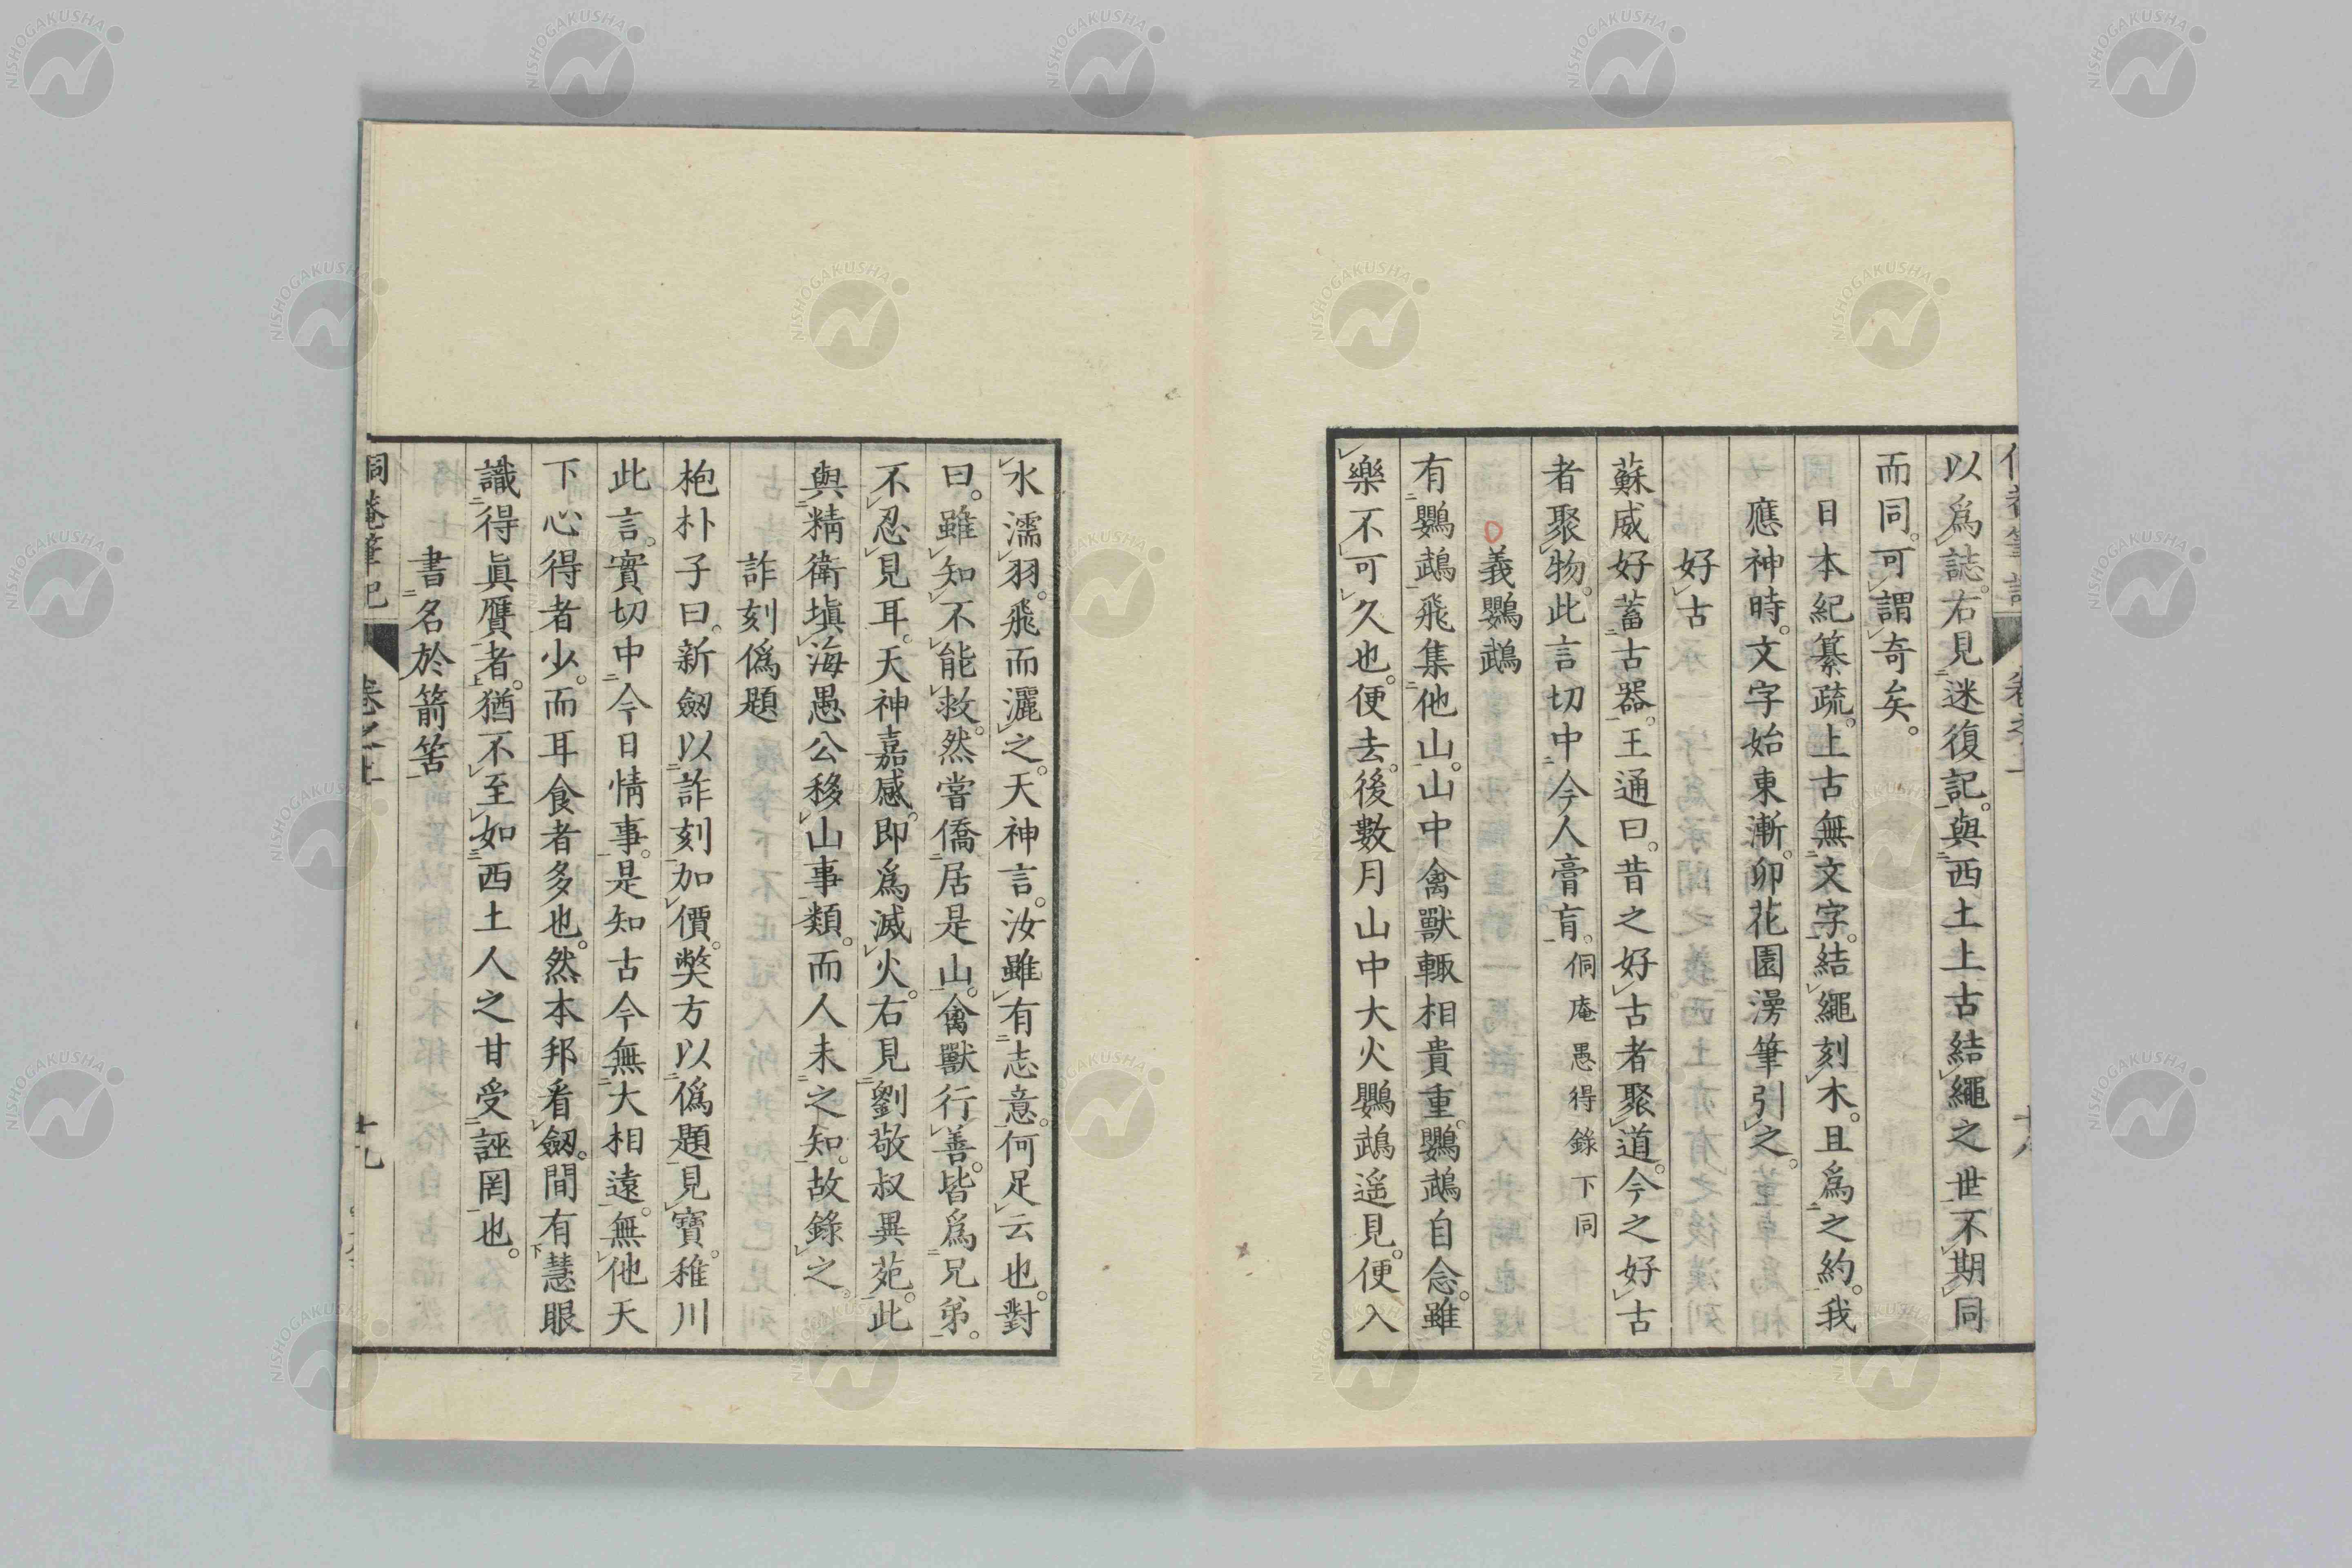 以爲誌。右見迷復記。與西土上古結繩之世不期同
而同。可謂奇矣。
日本紀纂疏。上古無文字。結繩刻木。且爲之約。我
應神時。文字始東漸。卯花園漫筆引之。
好古
蘇威好蓄古器。王通曰。昔之好古者聚道。今之好古
者聚物。此言切中今人膏肓。侗庵愚得錄下同
義鸚鵡
有鸚鵡飛集他山。山中禽獸輒相貴重。鸚鵡自念。雖
樂不可久也。便去。後數月山中大火鸚鵡遥見。便入
水濡羽。飛而灑之。天神言。汝雖有志意。何足云也。對
曰。雖知不能救。然嘗僑居是山。禽獸行善。皆爲兄弟。
不忍見耳。天神嘉感。即爲滅火。右見劉敬叔異苑。此
與精衛塡海愚公移山事類。而人未之知。故錄之
詐刻僞題
枹朴子曰。新劔以詐刻加價。獘方以僞題見寶。稚川
此言。實切中今日情事。是知古今無大相遠。無他天
下心得者少。而耳食者多也。然本邦看劔。間有慧眼
識得眞贋者。猶不至如西土人之甘受誣罔也。
書名於箭筈
侗菴筆記 卷之上 十九
NISHOGAKUSHA